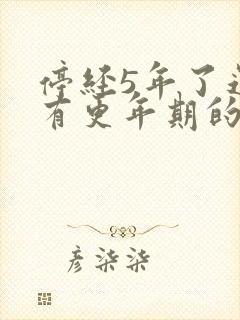 停经5年了
有更年期的
彦柒柒